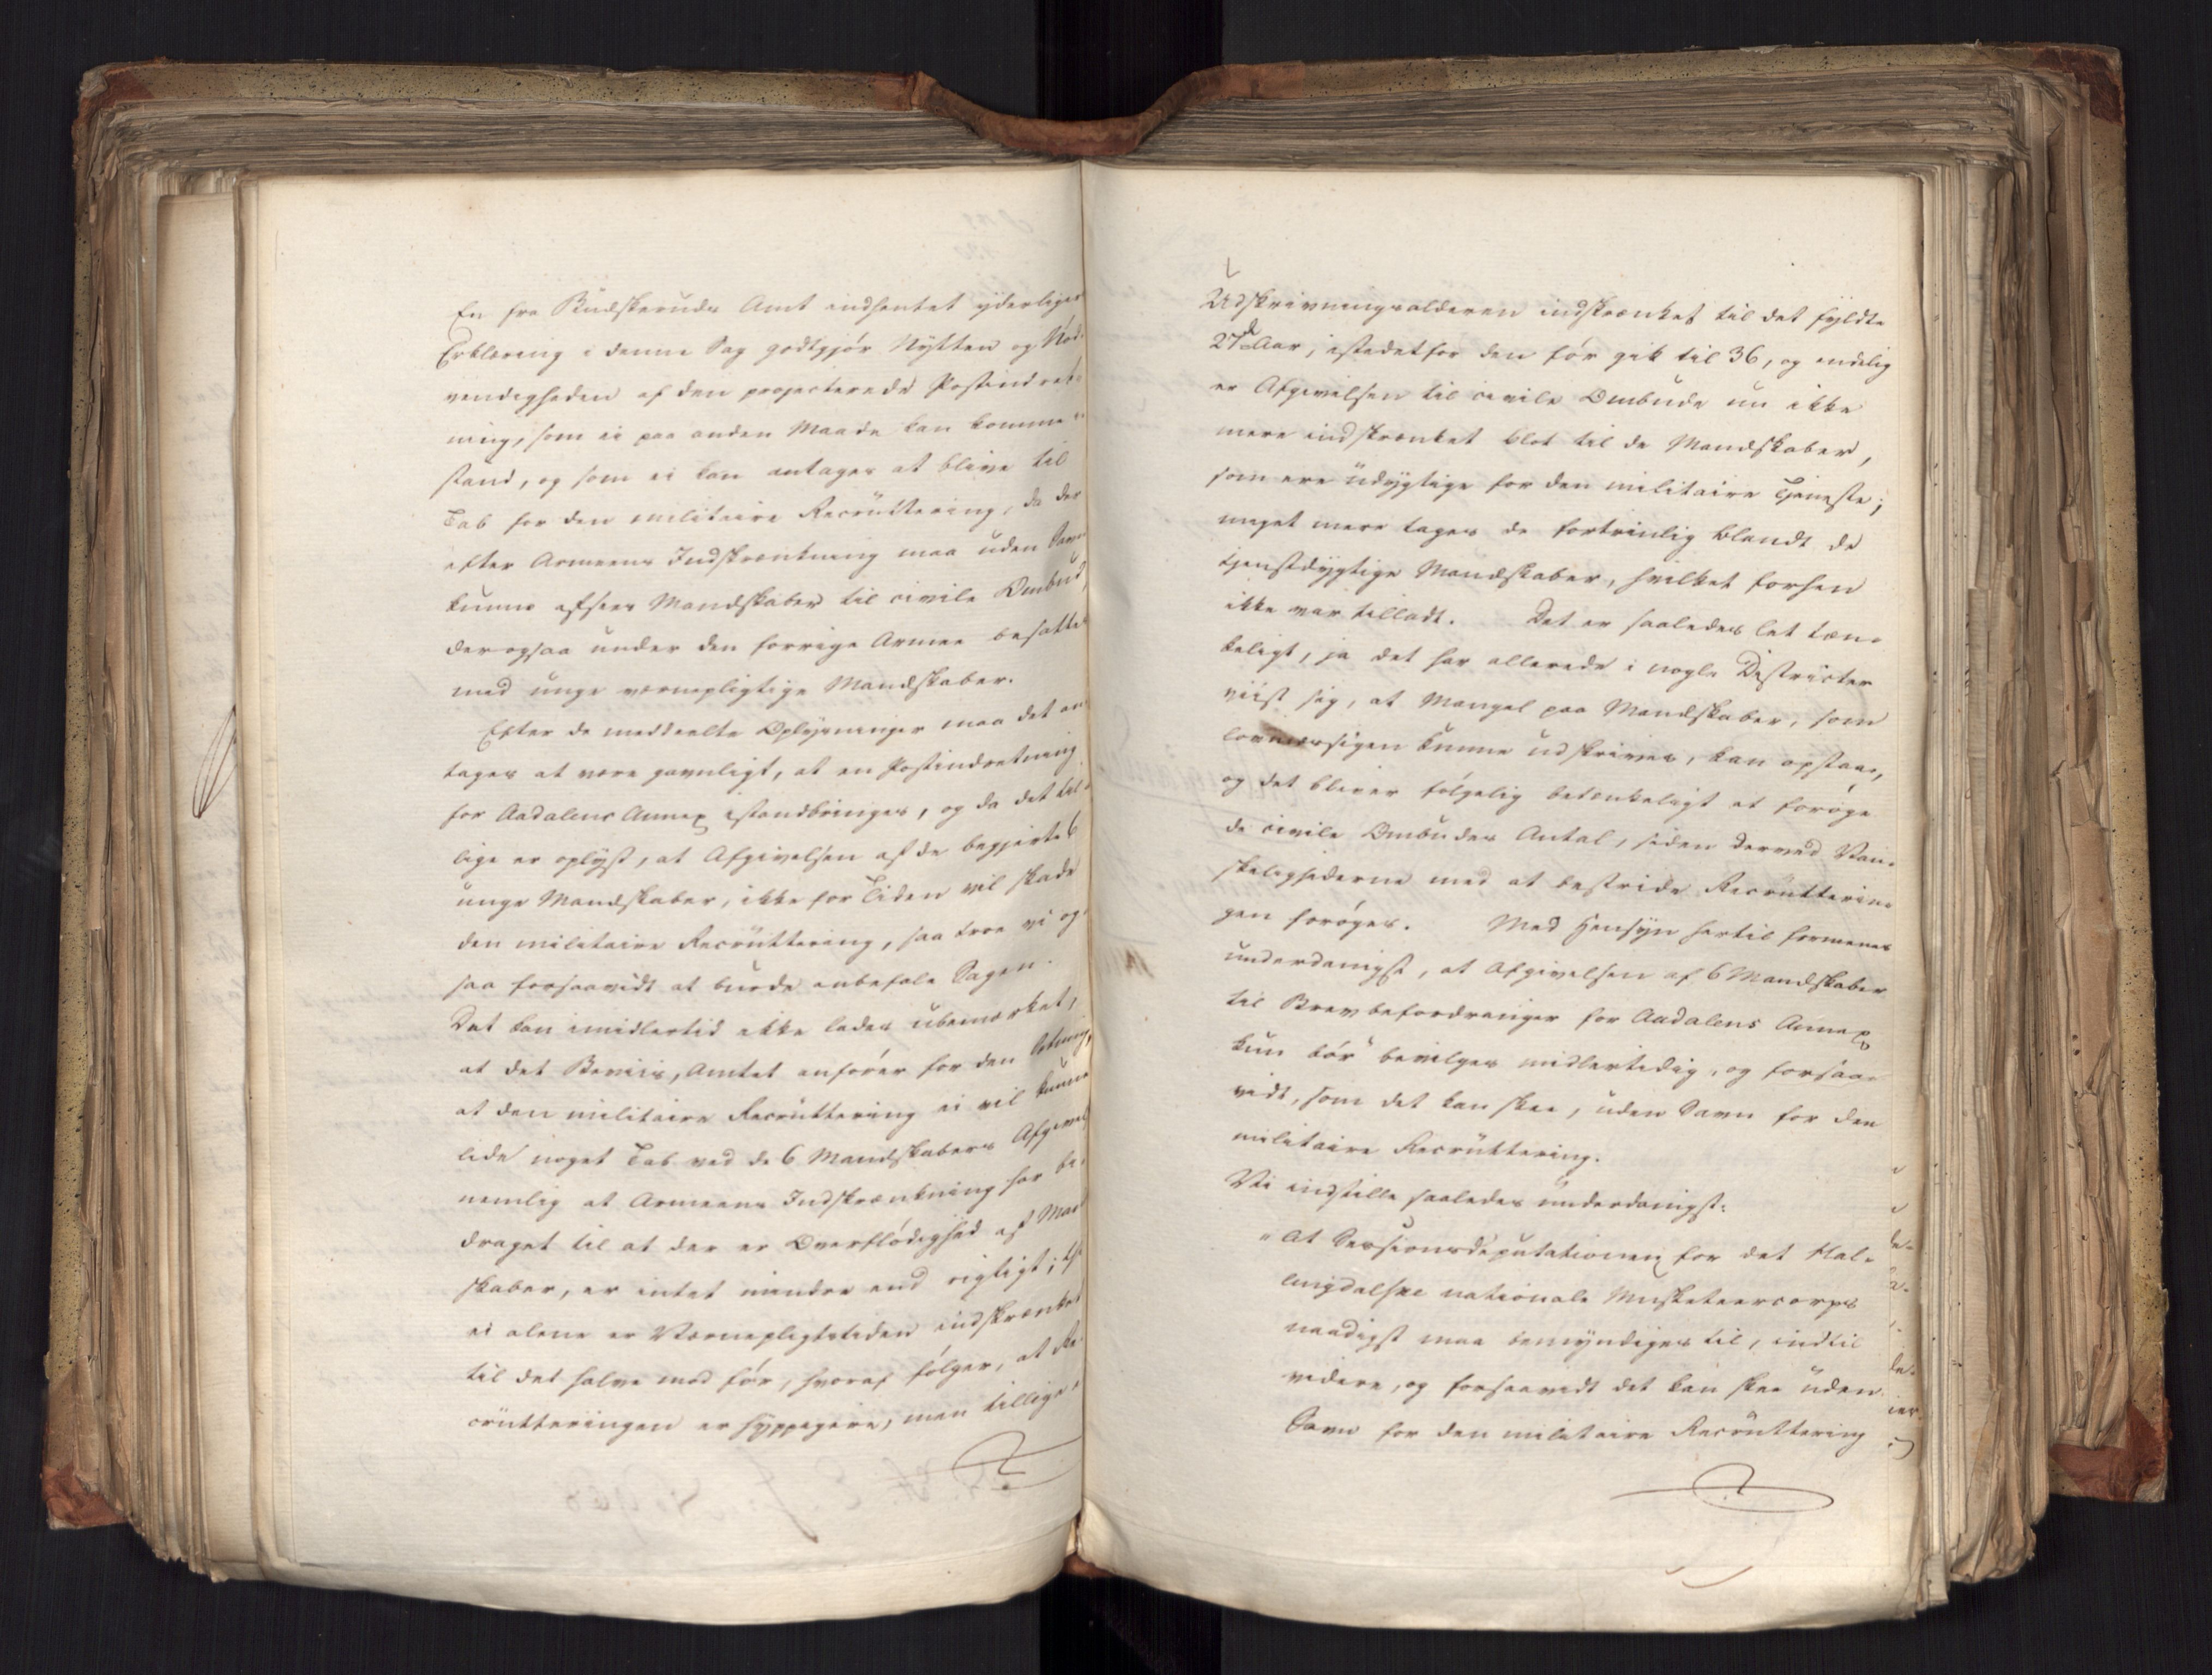 En fra Budskeruds Amt indhentet yderligere
Erklæring i denne Sag godtgjør Nytten og Nød-
vendigheden af den projecterede Postindret-
ning, som ei paa anden Maade kan komme i
stand, og som ei kan antages at blive til
Tab for den militaire Recruttering, da der
efter Armeens Indskrænkning maa uden Savn
kunne afsees Mandskaber til civile Ombud,
der ogsaa under den forrige Armee besattes
med unge værnepligtige Mandskaber.
Efter de meddeelte Oplysninger maa det an-
tages at være gavnligt, at en Postindretning
for Aadalens Annex istandbringes, og da det til-
lige er oplyst, at Afgivelsen af de begjerte 6
unge Mandskaber, ikke for Tiden vil skade
den militaire Recruttering, saa troe vi og-
saa forsaavidt at burde anbefale Sagen.
Det kan imidlertid ikke lades ubemærket,
at det Beviis, Amtet anfører for den Sætning,
at den militaire Recruttering ei vil kunne
lide noget Tab ved de 6 Mandskabers Afgivel
nemlig at Armeens Indskrænkning har be-
draget til at der er Overflødighed af Mand
skaber, er intet mindre end rigtigt; thi
ei alene er Værnepligtstiden indskrænket
til det halve mod før, hvoraf følger, at Re-
crutteringen er hyppigere, men tillige er
Udskrivningsalderen indskrænket til det fyldte
27de Aar, istedetfor den før gik til 36, og endelig
er Afgivelsen til civile Ombude nu ikke
mere indskrænket blot til de Mandskaber,
som ere udygtige for den militaire Tjeneste;
meget mere tages de fortrinlig blandt de
tjenstdygtige Mandskaber, hvilket forhen
ikke var tilladt. Det er saaledes let tæn-
keligt, ja det har allerede i nogle Districter
viist sig, at Mangel paa Mandskaber, som
lovmæssigen kunne udskrives, kan opstaae,
og det bliver følgelig betænkeligt at forøge
de civile Ombuders Antal, siden derved Van-
skelighederne med at bestride Recrutterin-
gen forøges. Med Hensyn hertil formenes
underdanigst, at Afgivelsen af 6 Mandskaber
til Brevbefordringer for Aadalens Annex
kun bør bevilges midlertidig, og forsaa-
vidt, som det kan skee, uden Savn for den
militaire Recruttering.
Vi indstille saaledes underdanigst:
"At Sessionsdeputationen for det Hal-
lingdalske nationale Musketeercorps
naadigst maa bemyndiges til, indtil
videre, og forsaavidt det kan skee uden
Savn for den militaire Recruttering